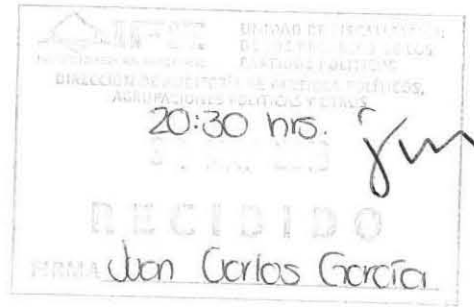 IFE UNIDAD DE FISCALIZACIÓN
DE LOS RECURSOS DE LOS
PARTIDOS POLÍTICOS
DIRECCIÓN DE AUDITORÍA DE PARTIDOS POLÍTICOS,
AGRUPACIONES POLÍTICAS Y OTROS
20:30 hrs.
RECIBIDO
FIRMA Juan Carlos García